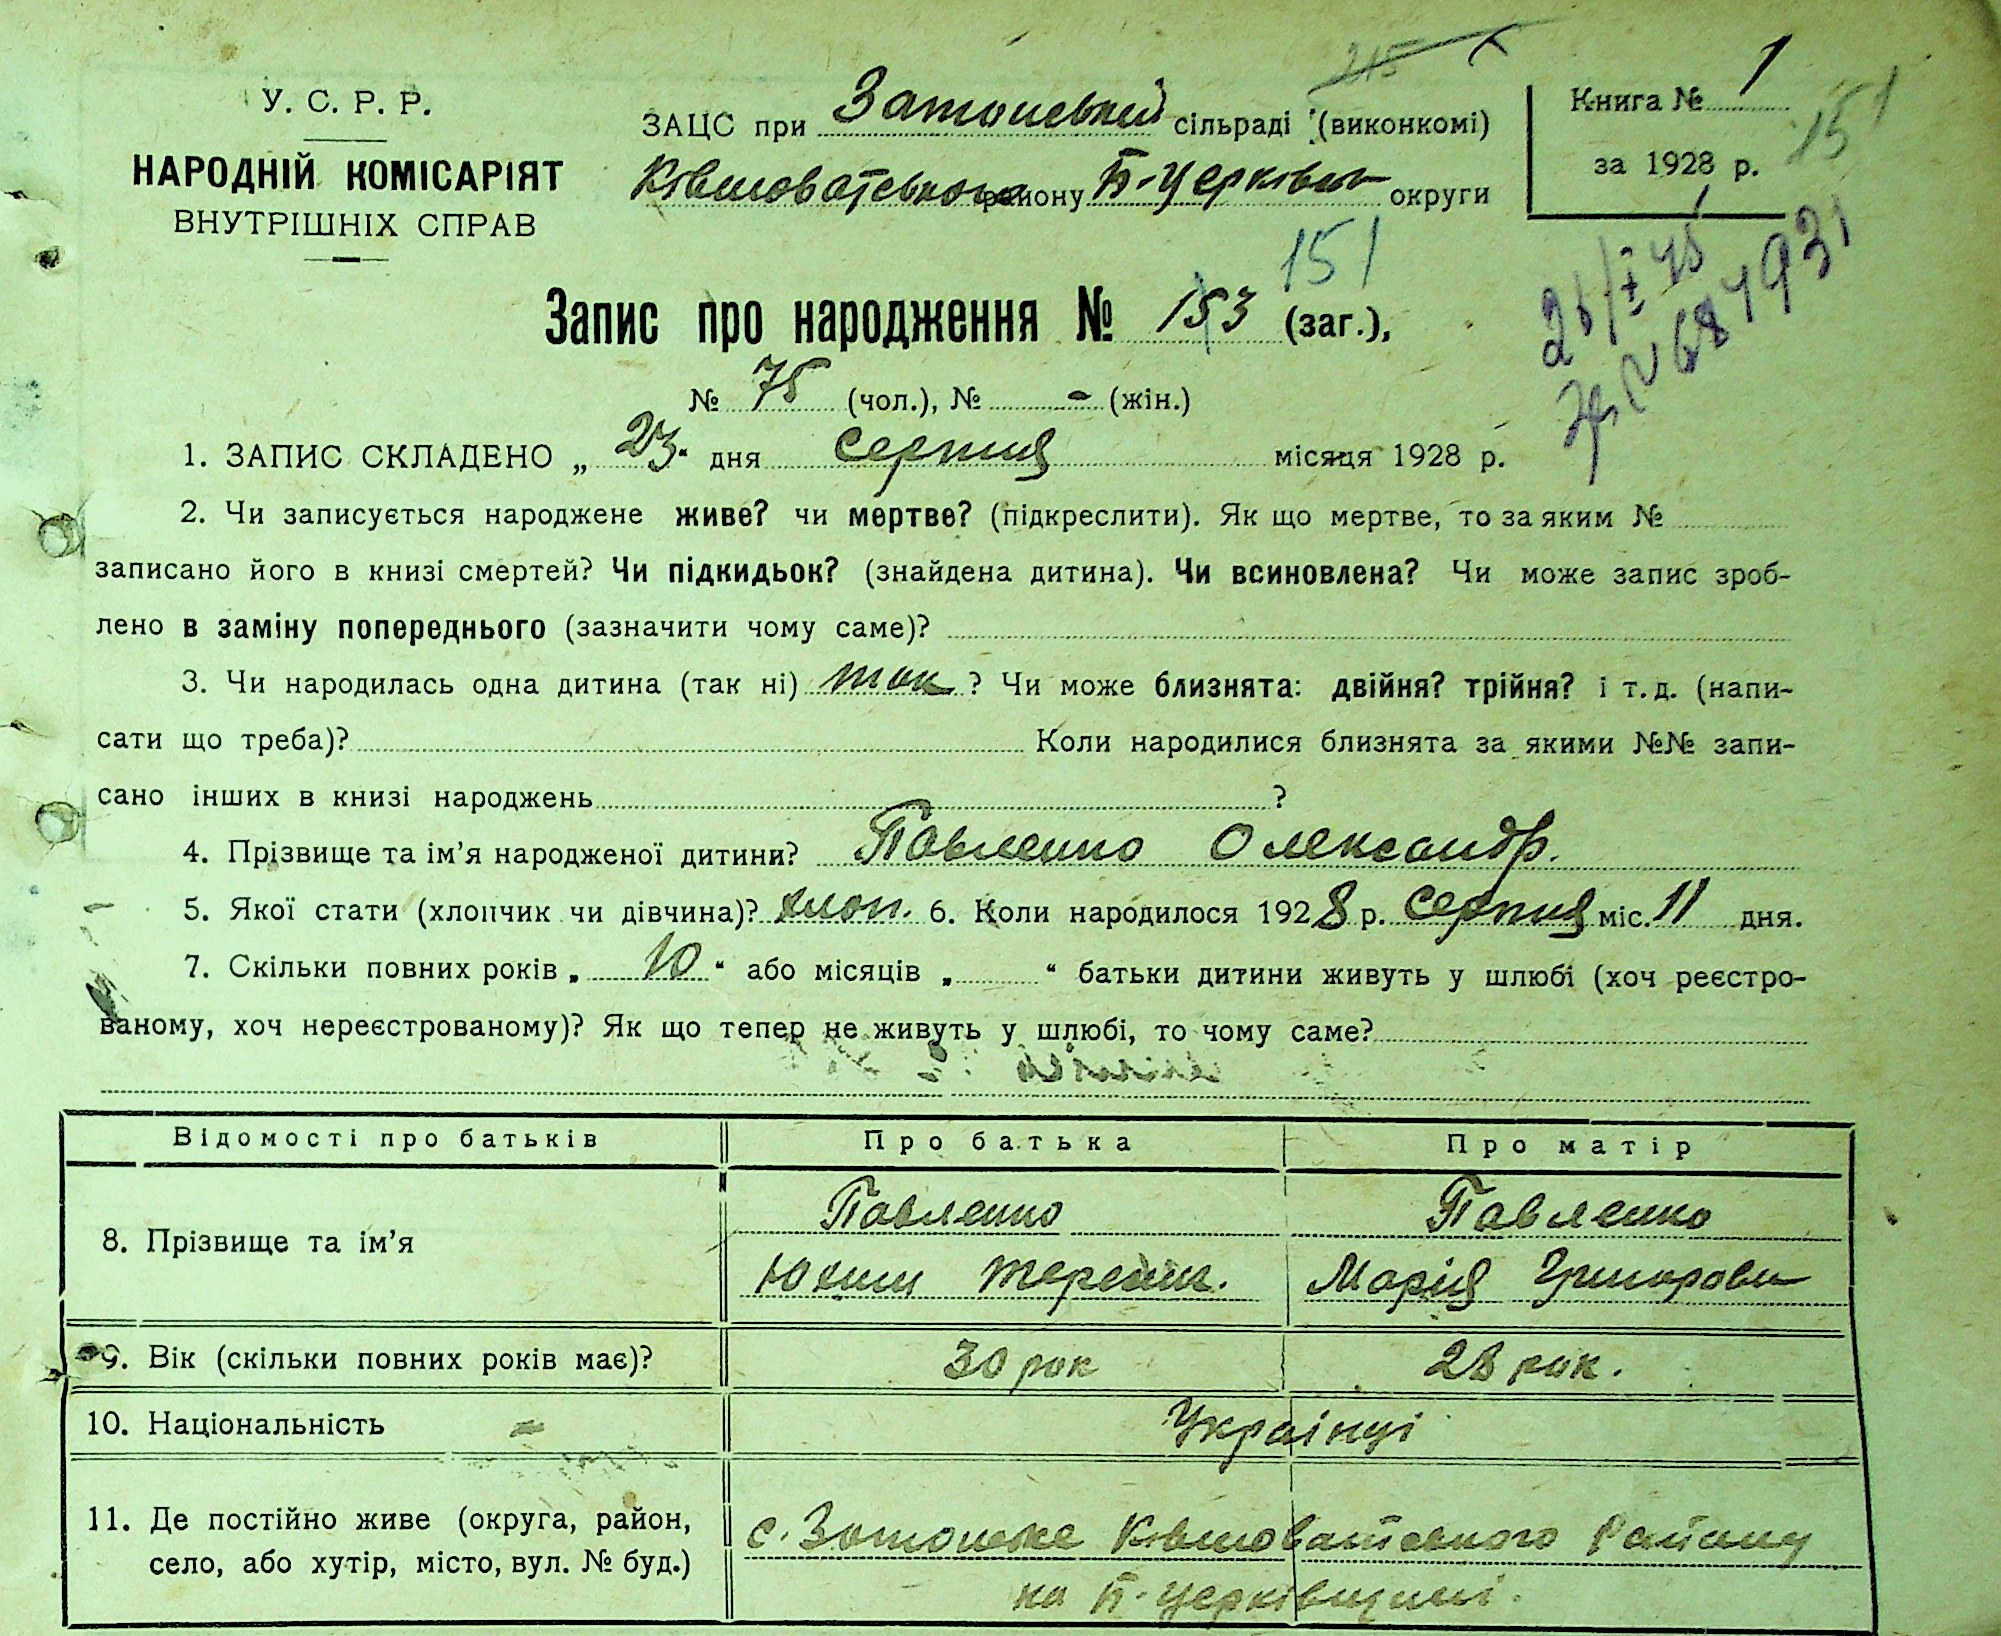 У. С. Р. Р.
НАРОДНІЙ КОМІСАРІЯТ
ВНУТРІШНІХ СПРАВ
ЗАЦС при Затонський сільраді (виконкомі)
Ківшоватського району Б-Церківськ округи
Книга № 1
за 1928 р.
151
215
151
Запис про народження № 153 (заг.),
№ 75 (чол.), № - (жін.)
1. ЗАПИС СКЛАДЕНО „ 23 “ дня серпня місяця 1928 р.
2. Чи записується народжене живе? чи мертве? (підкреслити). Як що мертве, то за яким №
записано його в книзі смертей? Чи підкидьок? (знайдена дитина). Чи всиновлена? Чи може запис зроб-
лено в заміну попереднього (зазначити чому саме)?
3. Чи народилась одна дитина (так ні) так ? Чи може близнята: двійня? трійня? і т. д. (напи-
сати що треба)? Коли народилися близнята за якими №№ запи-
сано інших в книзі народжень ?
4. Прізвище та ім'я народженої дитини? Павленко Олександр.
5. Якої стати (хлопчик чи дівчина)? хлоп. 6. Коли народилося 1928 р. серпня міс. 11 дня.
7. Скільки повних років „ 10 “ або місяців „ “ батьки дитини живуть у шлюбі (хоч реєстро-
ваному, хоч нереєстрованому)? Як що тепер не живуть у шлюбі, то чому саме?
Відомості про батьків Про батька Про матір
8. Прізвище та ім'я
Павленко Павленко
Юхим Марія Григоровн
9. Вік (скільки повних років має)? 30 рок 28 рок.
10. Національність Українці
11. Де постійно живе (округа, район,
село, або хутір, місто, вул. № буд.)
с. Затонське Ківшоватського Району
на Б-Церківщині.